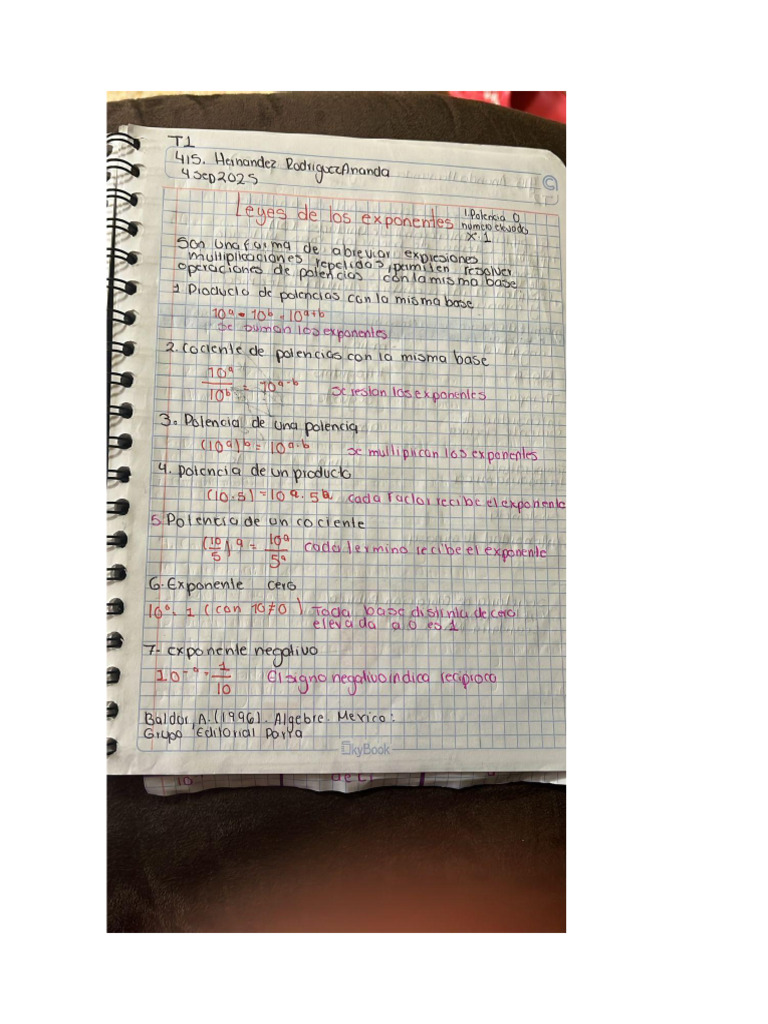 T1
415. Hernandez Rodriguez Ananda
4 sep 2025
Leyes de los exponentes
1. Potencia 0
numero elevado
x · 1
Son una forma de abreviar expresiones
multiplicaciones repetidas, permiten resolver
operaciones de potencias con la misma base
1 Producto de potencias con la misma base
10ᵃ · 10ᵇ = 10ᵃ⁺ᵇ
se suman los exponentes
2. Cociente de potencias con la misma base
10ᵃ/10ᵇ = 10ᵃ⁻ᵇ se restan los exponentes
3. Potencia de una potencia
(10ᵃ)ᵇ = 10ᵃ·ᵇ se multiplican los exponentes
4. potencia de un producto
(10.5) = 10ᵃ. 5ᵃ cada factor recibe el exponente
5 Potencia de un cociente
(10/5)ᵃ = 10ᵃ/5ᵃ cada termino recibe el exponente
6. Exponente cero
10⁰ · 1 (con 10 ≠ 0) Toda base distinta de cero
elevada a 0 es 1
7- exponente negativo
10⁻ᵃ = 1/10 El signo negativo indica reciproco
Baldor, A. (1996). Algebra. Mexico:
Grupo Editorial Porra
SkyBook